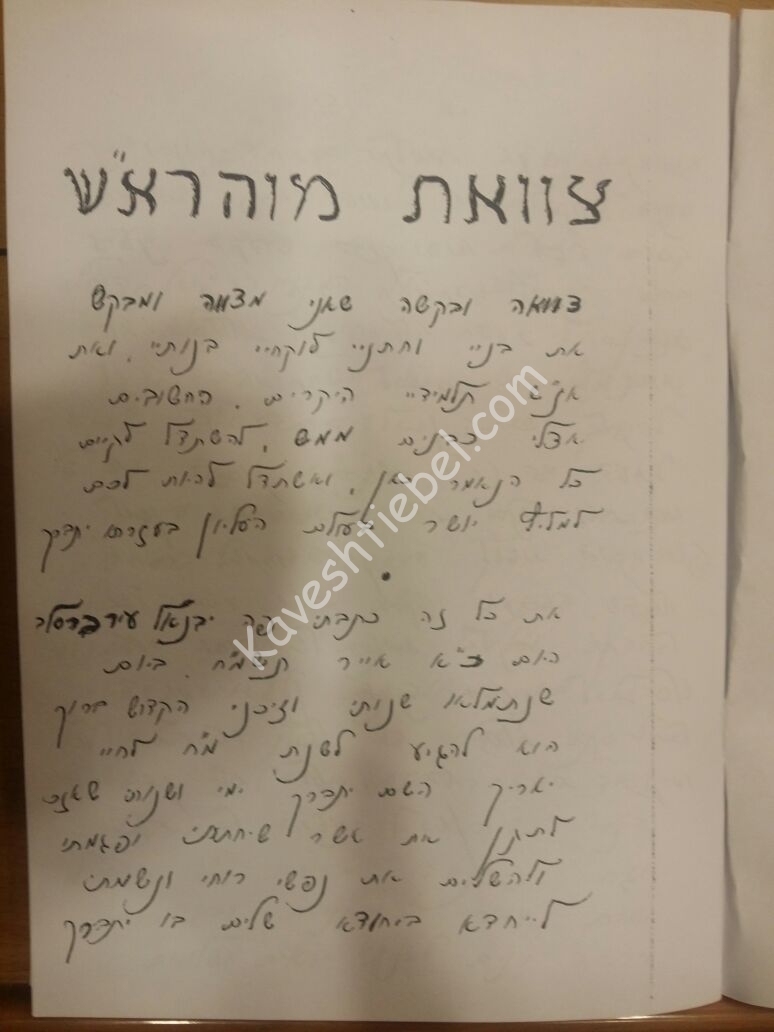 צוואת מוהרא״ש
צוואה ובקשה שאני מצווה ומבקש
את בניי וחתניי לוקחיי בנותיי, ואת
אנ״ש תלמידיי היקרים, החשובים
אצלי כבנים ממש, להשתדל לקיים
כל הנאמר כאן, ואשתדל להיות לכם
למליץ יושר בעולם העליון בעזרתו יתברך
את כל זה כתבתי פה יבנאל עיר ברסלב
היום כ״א אייר תש״מ״ח, ביום
שנתמלאו שנותי וזיכני הקדוש ברוך
הוא להגיע לשנת מ״ח לחיי
יאריך השם יתברך ימי ושנותי שאזכה
לתקן את אשר שיחתתי ופגמתי
ולהשלים את נפשי רוחי ונשמתי
לייחדא ביחודא שלים בו יתברך
Kaveshtiebel.com